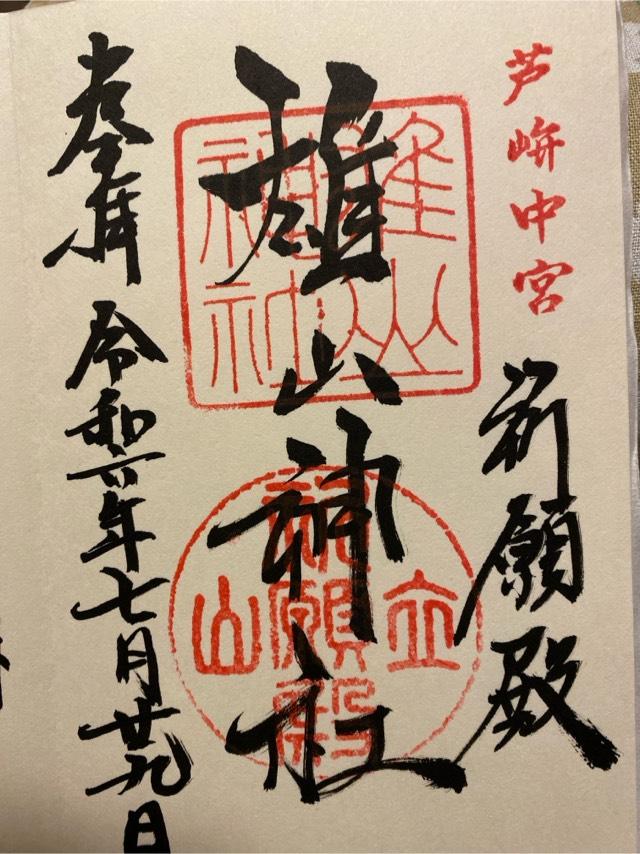 芦峅中宮
祈願殿
雄山神社
雄山神社
立山
祈願殿
奉拝 令和六年七月廿九日